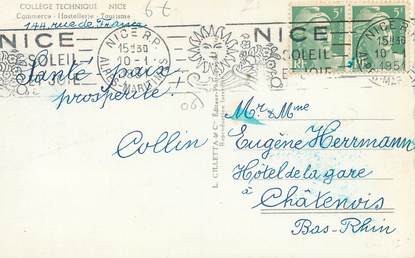 COLLÈGE TECHNIQUE NICE
Commerce - Hostellerie - Tourisme
144 rue de France
NICE
SOLEIL
NICE R.P.
15H30
10-1
ALPES-MARITIMES
NICE
SOLEIL
NICE R.P.
15H30
10-1
1951
5F
RF
RF
Santé! paix
prospérité!
Collin
Mr & Mme
Eugène Herrmann
Hôtel de la gare
à
Châtenois
Bas-Rhin